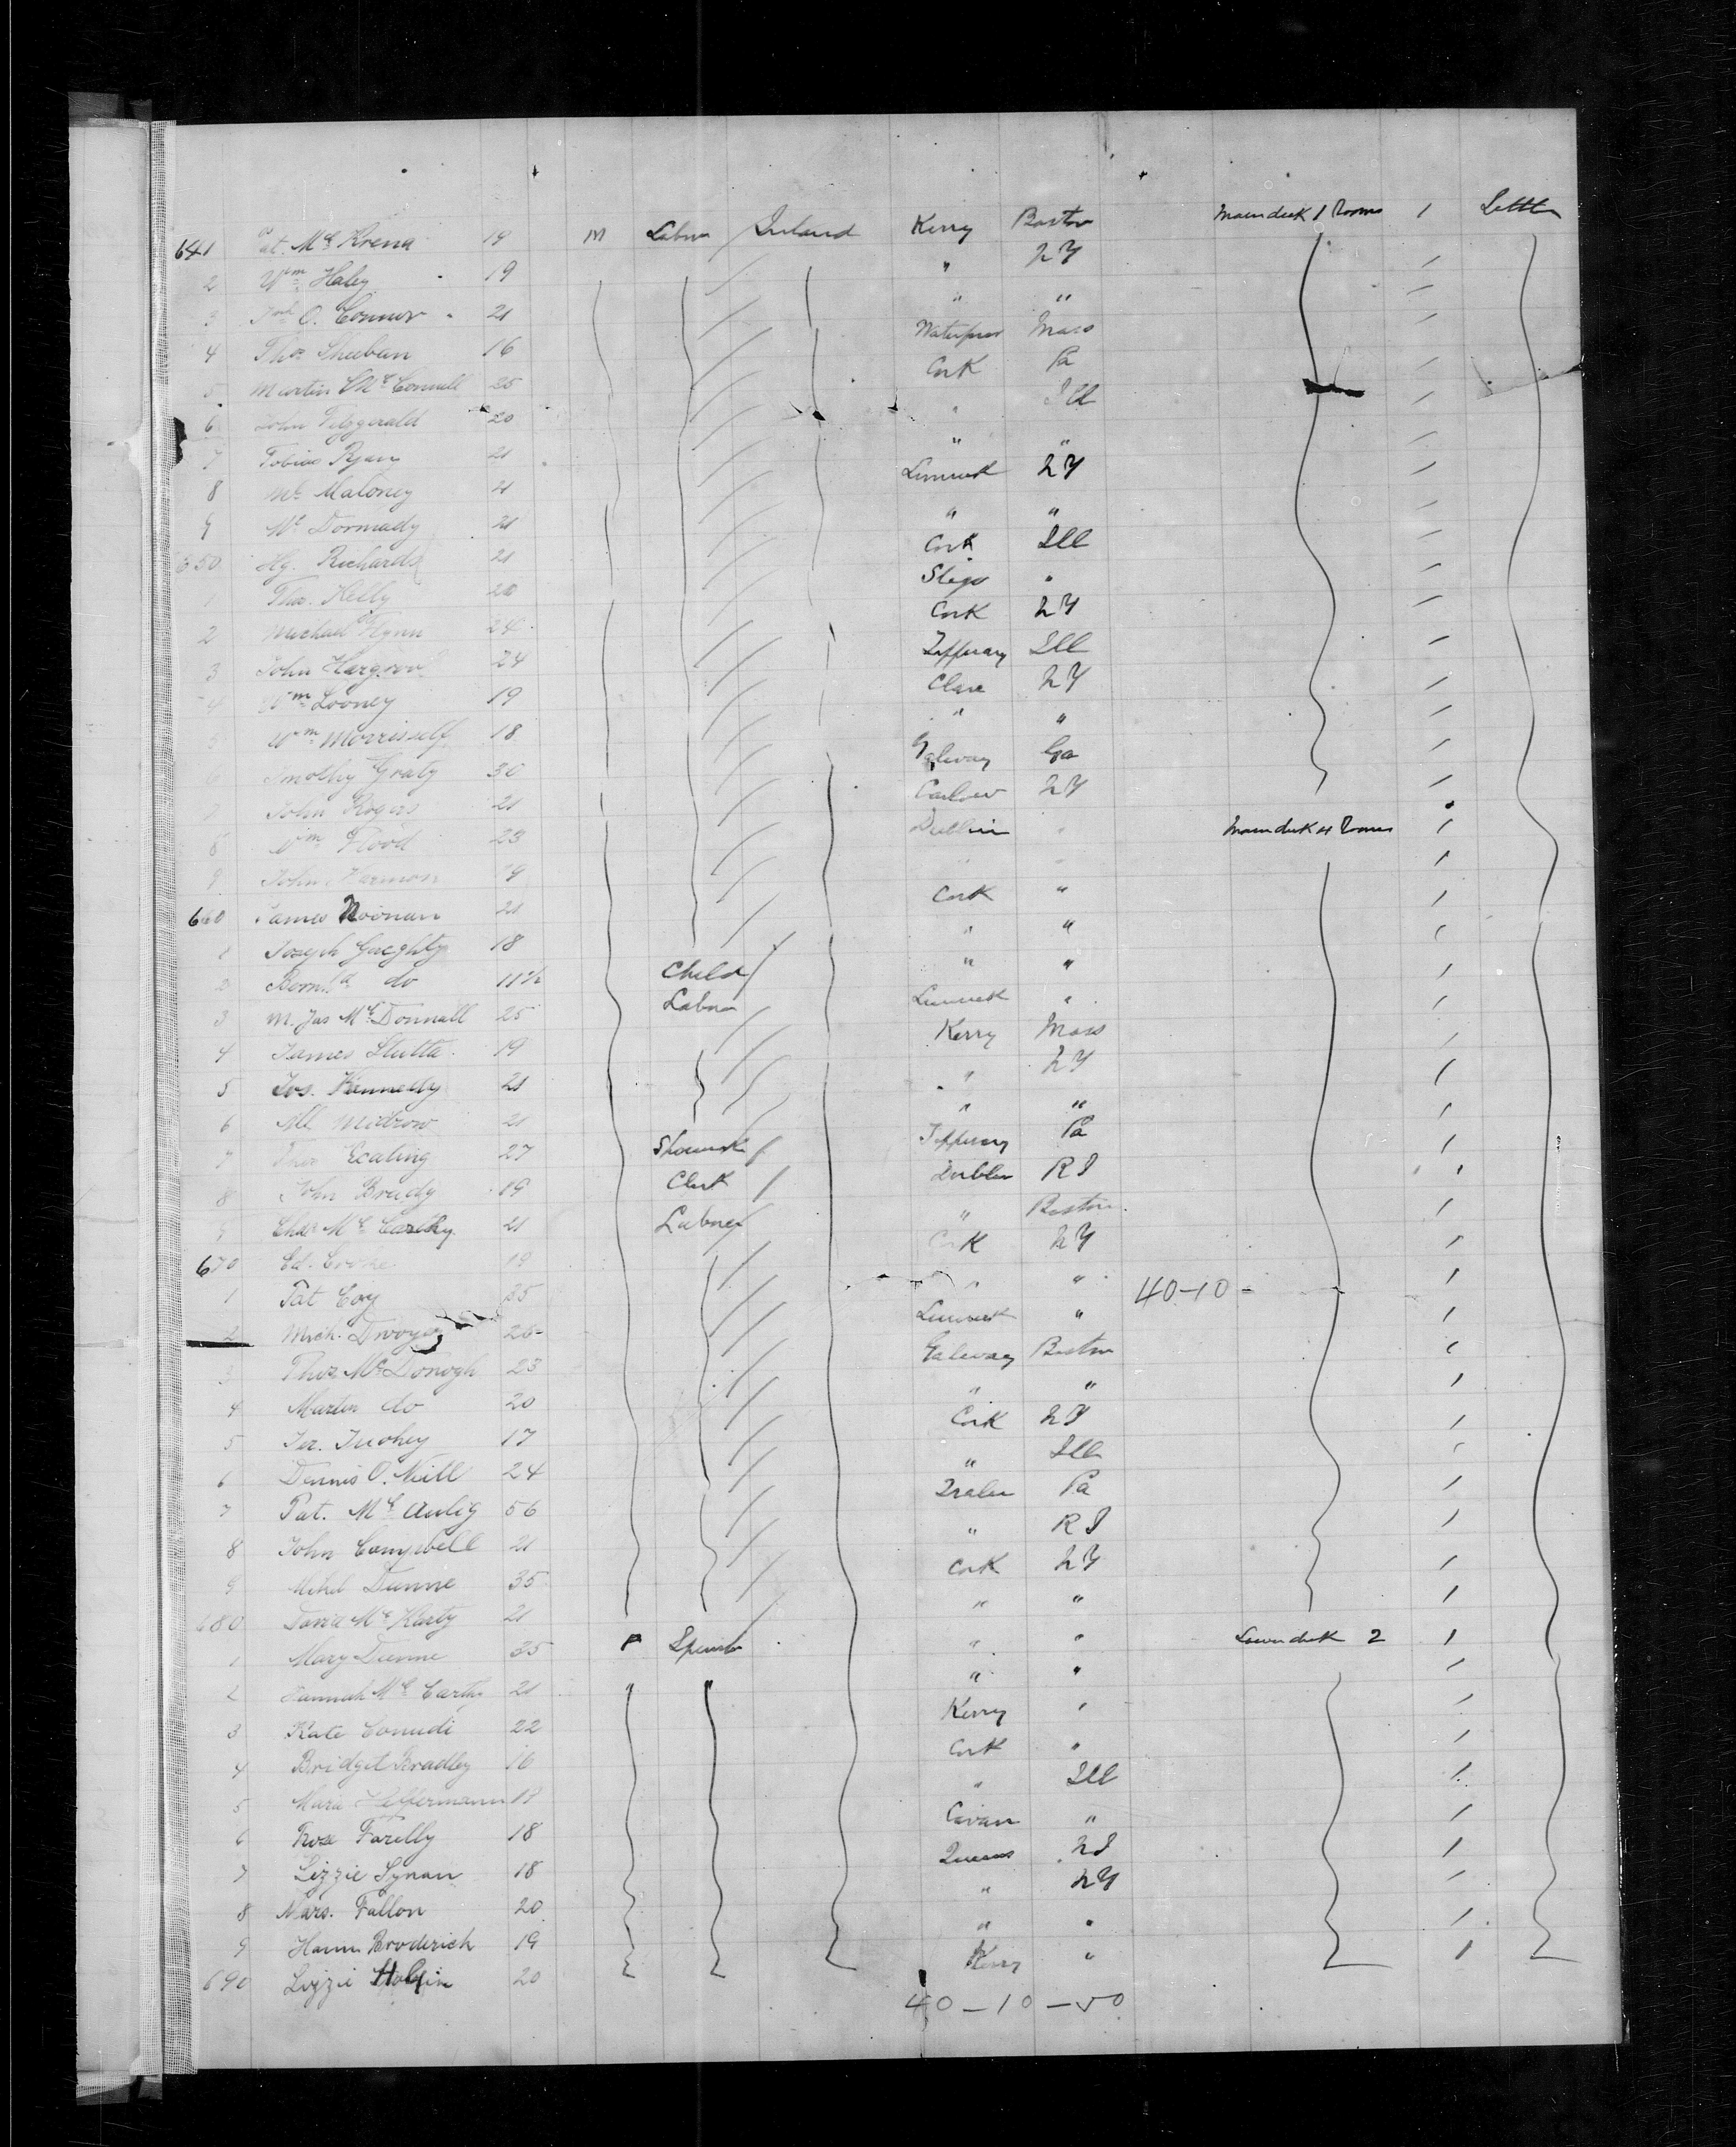 641 Pat. McKrena 19 M Labor Ireland Kerry Boston Main deck 1 Rooms 1 Settler
2 Wm Haley 19 " NY
3 O. Connor 21 " "
4 Thos Sheehan 16 Mass
5 Martin McConnell 25 Cork Pa
6 John Fitzgerald 20 " Ill
7 Tobias Ryan 21 " "
8 Mc Maloney 21 Limerick NY
9 Mc Dormady 21 " "
650 Hy. Richards 21 Cork Ill
1 Thos. Kelly 20 Sligo "
2 Michael Flynn 24 Cork NY
3 John Hargrove 24 Tipperary Ill
4 Wm Looney 19 Clare NY
5 Wm 18 " "
6 30 Galway Ga
7 John Rogers 21 Carlow NY
8 Wm Flood 23 Dublin " Main deck 4 Rooms 1
9 John Harmon 19 " "
660 James Noonan 21 Cork "
1 Joseph Gaeghty 18 " "
2 do 11½ Child " "
3 M. Jas McDonnall 25 Labor Limerick "
4 James 19 Kerry Mass
5 Jos. Kennedy 21 " NY
6 21 " "
7 27 Tipperary Pa
8 John Brady 19 Clerk Dublin RI
9 Chas McCarthy 21 Labor " Boston
670 Ed. Cooke 19 Cork NY
1 Pat Coy 25 " " 40-10-
2 Mich. Dwoyer 25 Limerick "
3 Thos McDonogh 23 Galway Boston
4 Martin do 20 " "
5 Jer. Tuohey 17 Cork NY
6 Dennis O. Neill 24 " Ill
7 Pat. McAulig 56 Tralee Pa
8 John Campbell 21 " RI
9 Michl Dunne 35 Cork NY
680 David McKarty 21 " "
1 Mary Dunne 35 F Spinster " " Lower deck 2 1
2 Hannah McCarthy 21 " "
3 Kate 22 Kerry "
4 Bridget Bradley 16 Cork "
5 Maria 18 " Ill
6 Rose Farelly 18 Cavan "
7 Lizzie Synan 18 Queens NJ
8 Mars. Fallon 20 " NY
9 Hann Broderick 19 " "
690 Lizzie 20 Kerry "
40-10-50